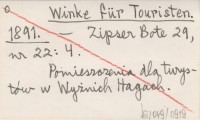 Winke für Touristen.
1891. — Zipser Bote 29,
nr 22: 4.
Pomieszczenia dla turys-
tów w Wyżnich Hagach.